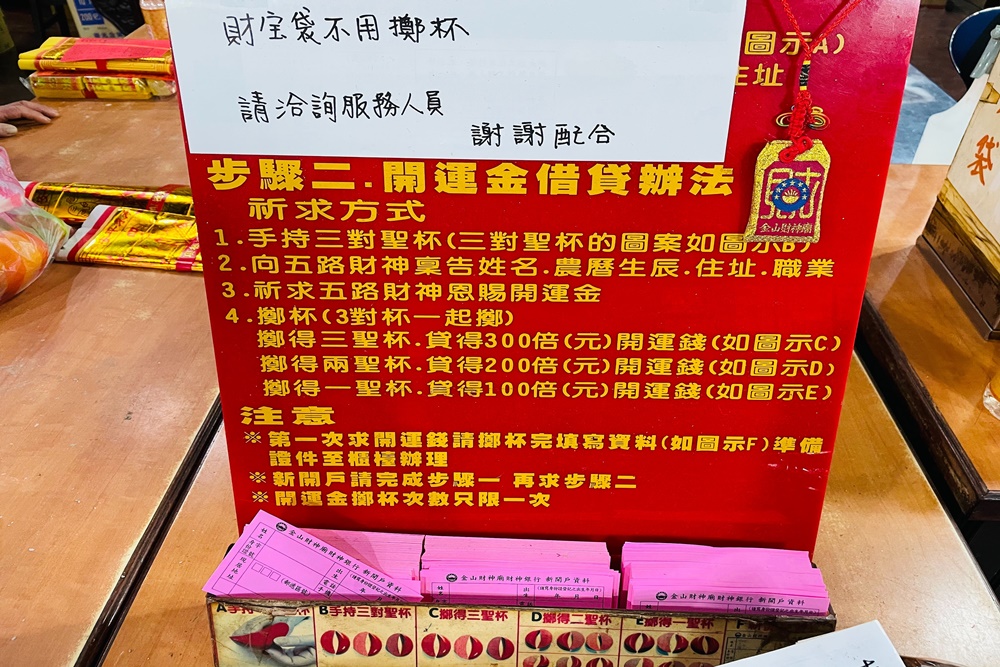 財宝袋不用擲杯
請洽詢服務人員
謝謝配合
圖示A)
址
步驟二.開運金借貸辦法
祈求方式
1.手持三對聖杯(三對聖杯的圖案如圖示B)
2.向五路財神稟告姓名.農曆生辰.住址.職業
3.祈求五路財神恩賜開運金
4.擲杯(3對杯一起擲)
擲得三聖杯.貸得300倍(元)開運錢(如圖示C)
擲得兩聖杯.貸得200倍(元)開運錢(如圖示D)
擲得一聖杯.貸得100倍(元)開運錢(如圖示E)
注意
※第一次求開運錢請擲杯完填寫資料(如圖示F)準備
證件至櫃檯辦理
※新開戶請完成步驟一 再求步驟二
※開運金擲杯次數只限一次
財
金山財神廟
袋
金山財神廟財神銀行 新開戶資料
姓名
現居地址
金山財神廟財神銀行 新開戶資料
金山財神廟財神銀行 新開戶資料
A手持
B手持三對聖杯
C擲得三聖杯
D擲得二聖杯
E擲得一聖杯
F